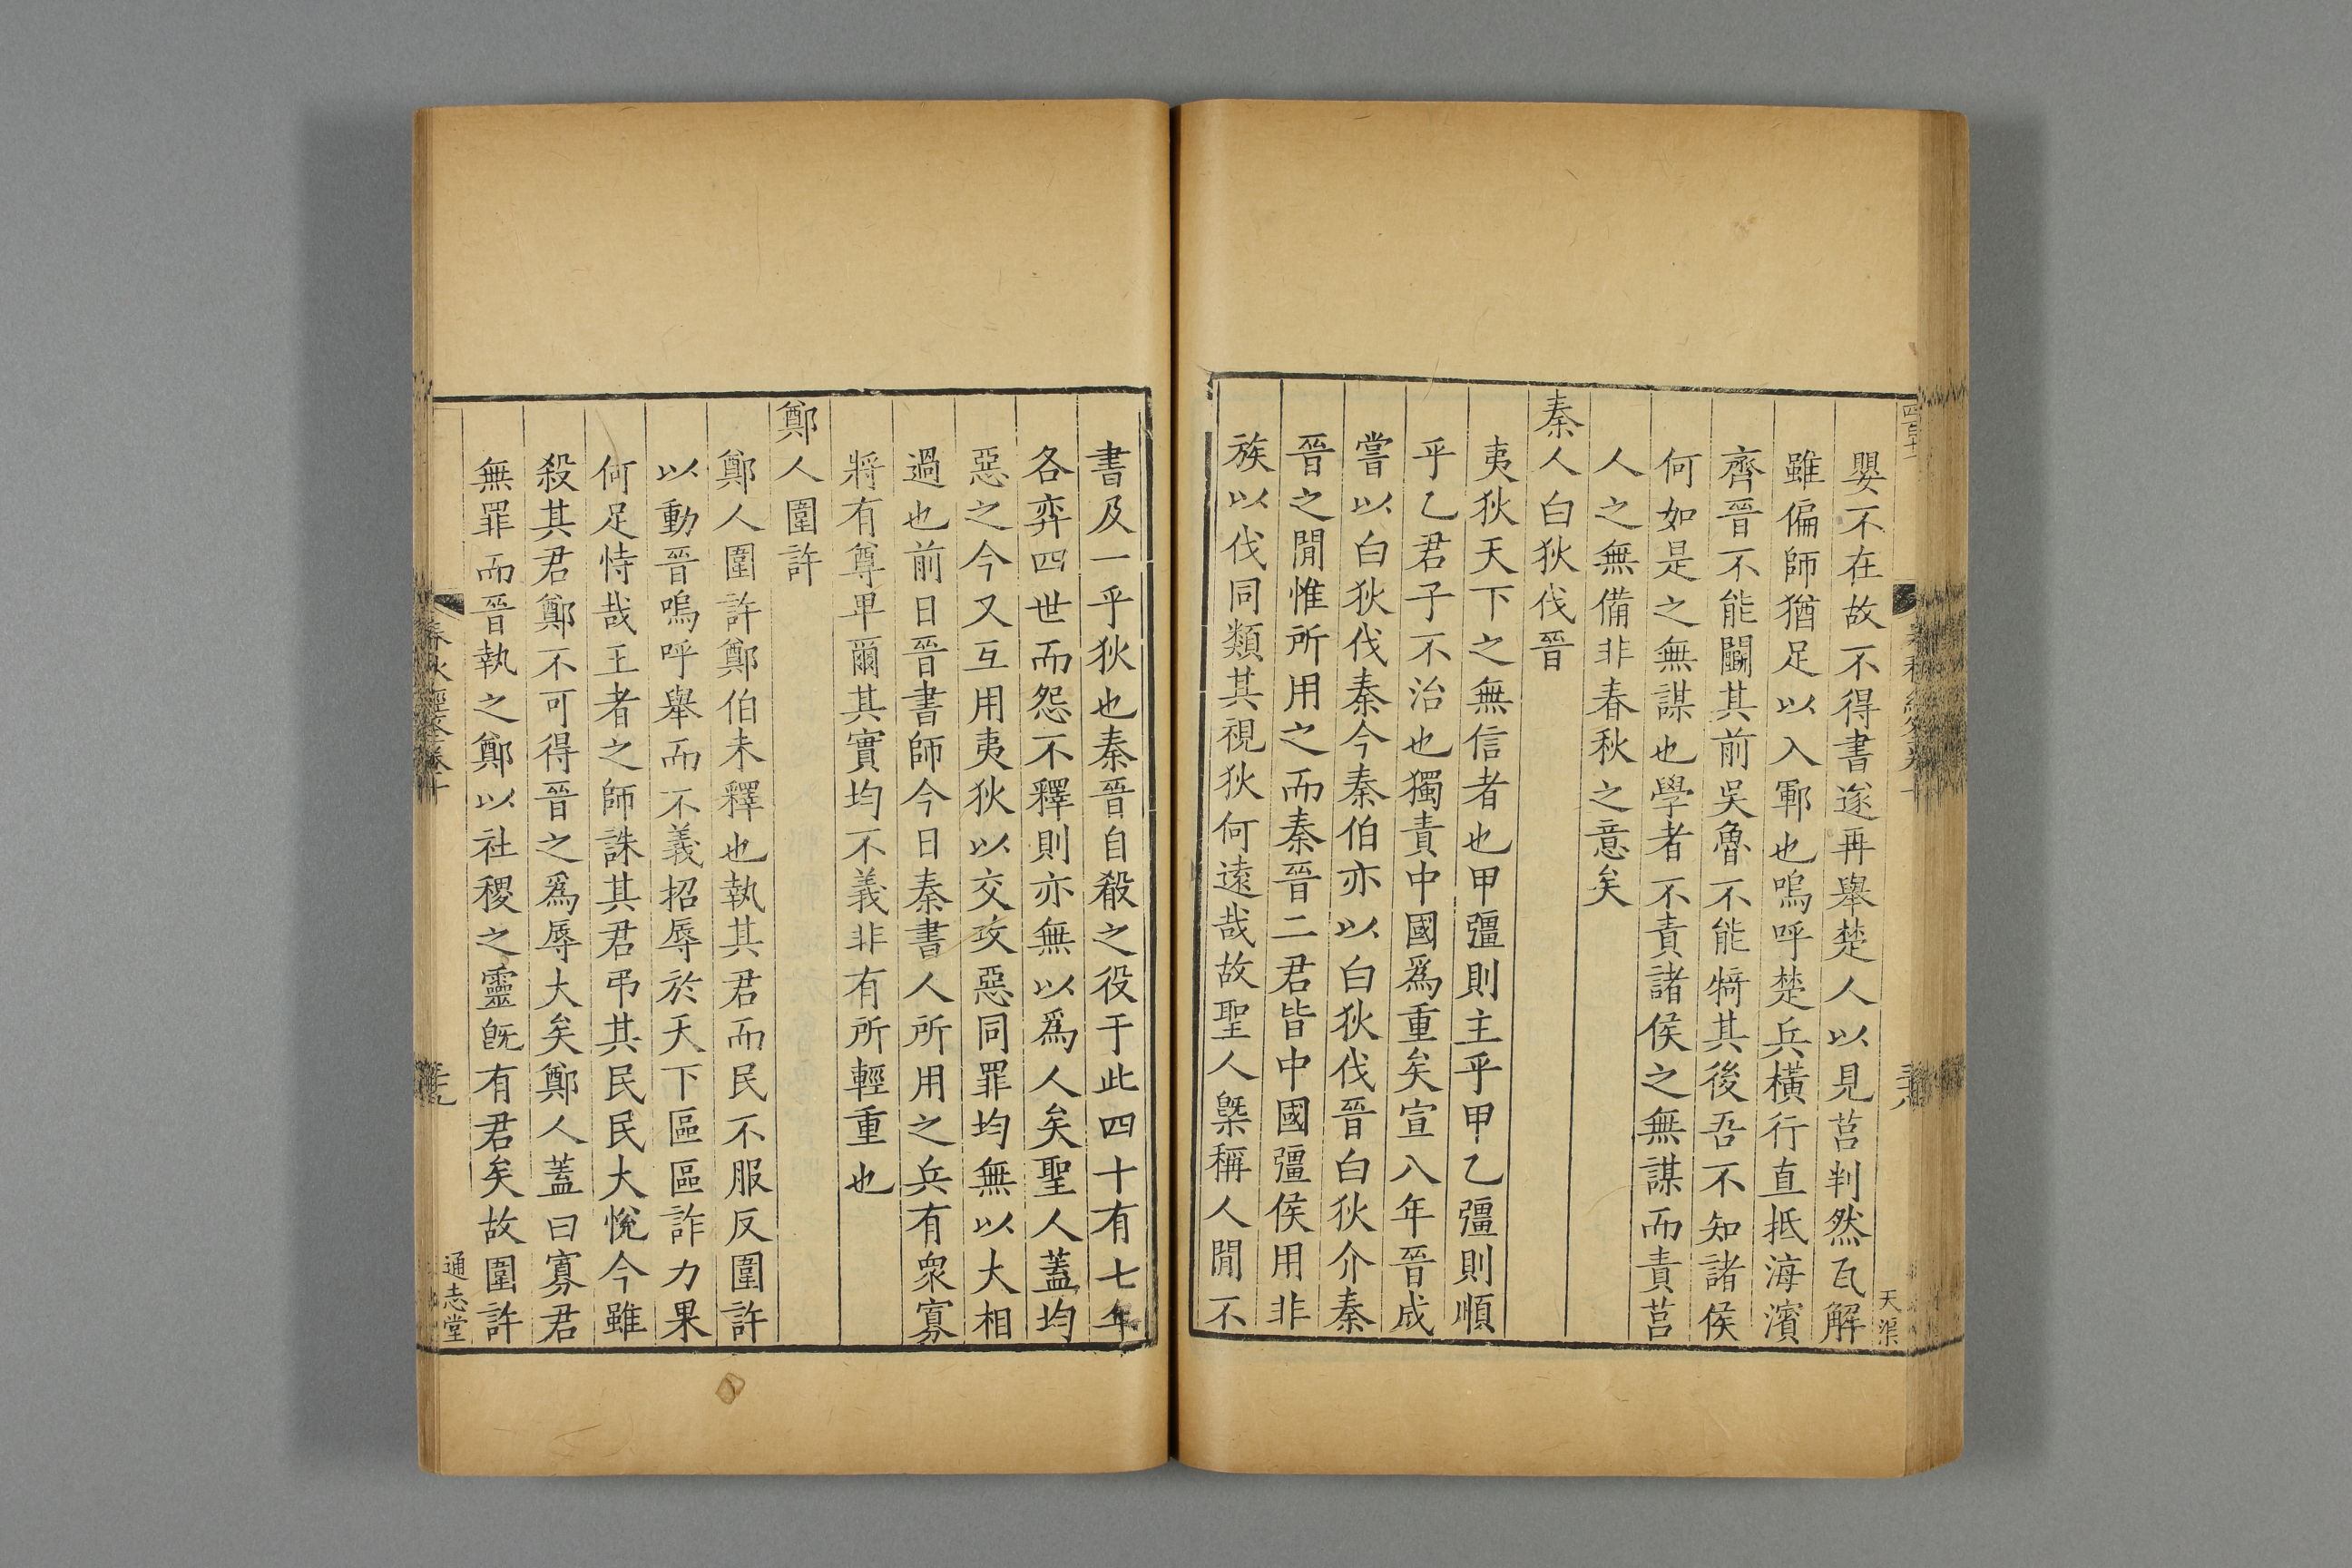 嬰不在故不得書遂再舉楚人以見莒判然瓦解
雖偏師猶足以入鄆也嗚呼楚兵橫行直抵海濱
齊晉不能鬭其前吳魯不能犄其後吾不知諸侯
何如是之無謀也學者不責諸侯之無謀而責莒
人之無備非春秋之意矣
秦人白狄伐晉
夷狄天下之無信者也甲彊則主乎甲乙彊則順
乎乙君子不治也獨責中國爲重矣宣八年晉成
嘗以白狄伐秦今秦伯亦以白狄伐晉白狄介秦
晉之閒惟所用之而秦晉二君皆中國彊侯用非
族以伐同類其視狄何遠哉故聖人槩稱人閒不
天渠
書及一乎狄也秦晉自殽之役于此四十有七年
各弈四世而怨不釋則亦無以爲人矣聖人蓋均
惡之今又互用夷狄以交攻惡同罪均無以大相
過也前日晉書師今日秦書人所用之兵有衆寡
將有尊卑爾其實均不義非有所輕重也
鄭人圍許
鄭人圍許鄭伯未釋也執其君而民不服反圍許
以動晉嗚呼舉而不義招辱於天下區區詐力果
何足恃哉王者之師誅其君弔其民民大悅今雖
殺其君鄭不可得晉之爲辱大矣鄭人蓋曰寡君
無罪而晉執之鄭以社稷之靈旣有君矣故圍許
通志堂